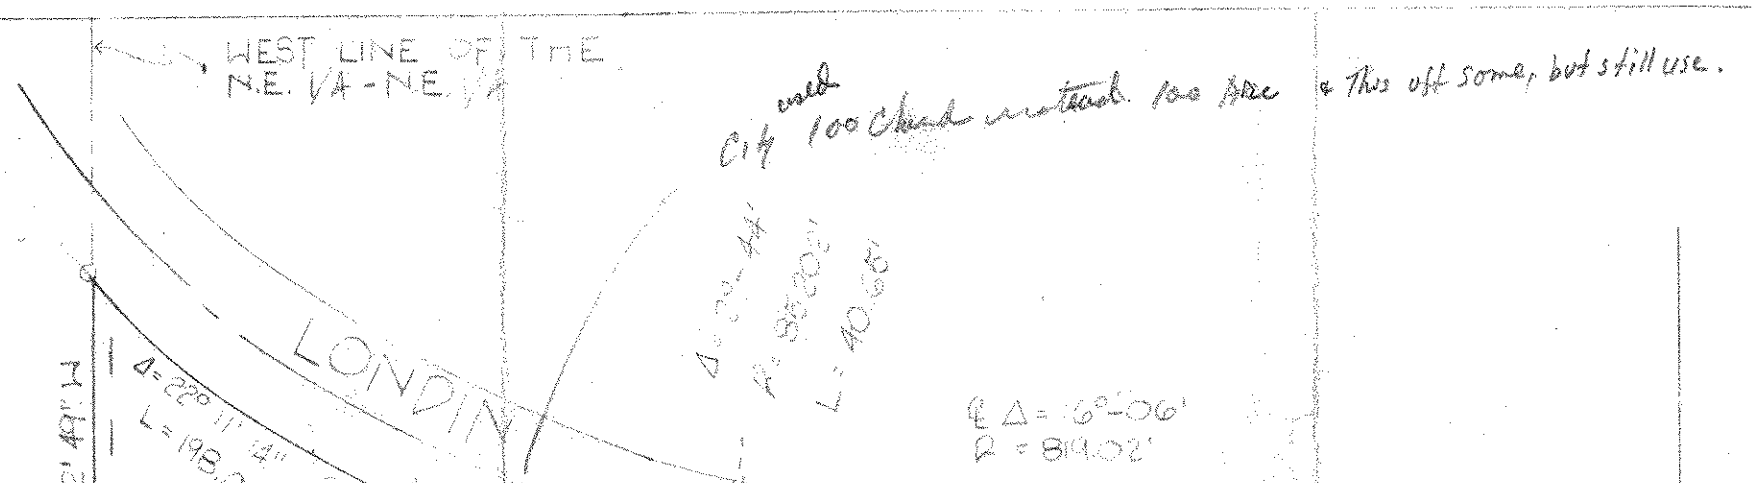 WEST LINE OF THE
N.E. 1/4 - N.E. 1/4
used
City 100 Chord instead. 100 Arc & This off some, but still use.
LONDIN
Δ = 22° 11' 14"
L = 198.
2' 49" W
L = 40.66'
℄ Δ = 16°-06'
R = 819.02'